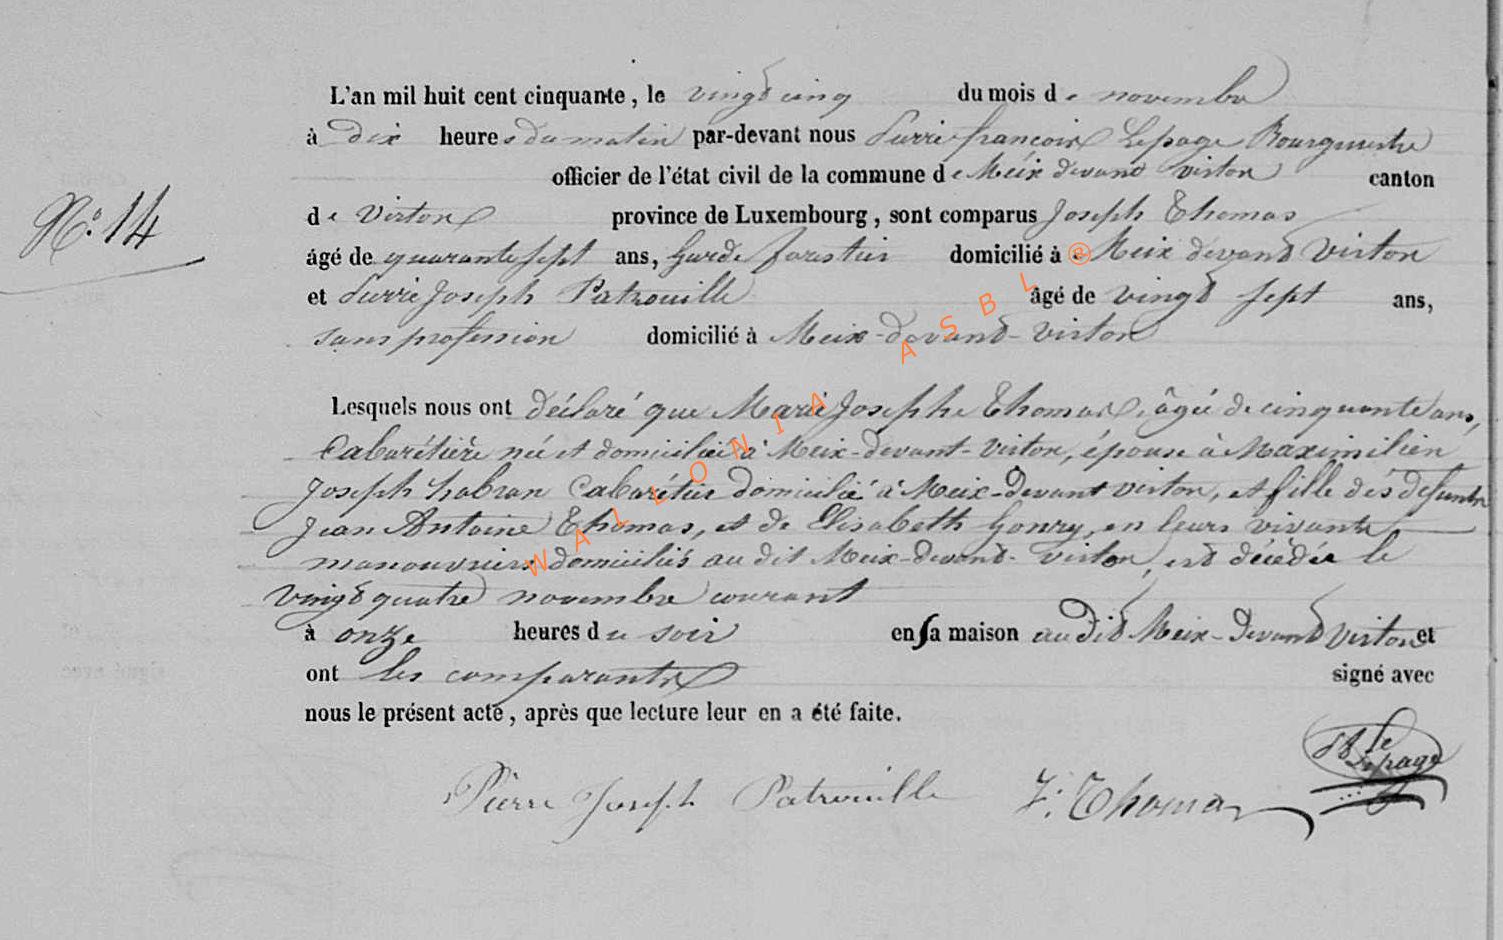 L'an mil huit cent cinquante, le vingt cinq du mois de novembre
à dix heures du matin par-devant nous Pierre françois Lepage Bourgmestre
officier de l'état civil de la commune de Meix devant virton canton
N° 14
de Virton province de Luxembourg, sont comparus Joseph Thomas
âgé de quarante sept ans, Garde forestier domicilié à Meix devant Virton
et Pierre Joseph Patrouille âgé de vingt sept ans,
sans profession domicilié à Meix-devant-virton
Lesquels nous ont déclaré que Marie Josephe Thomas, âgée de cinquante ans,
Cabarétière née et domiciliée à Meix-devant-virton, épouse à Maximilien
Joseph habran Cabarétier domicilié à Meix-Devant virton, et fille des défunts
Jean Antoine Thomas, et de Elisabeth Gonry, en leurs vivants
manouvriers domiciliés au dit Meix-devant-virton, est décédée le
vingt quatre novembre courant
à onze heures du soir en sa maison au dit Meix-Devant virton et
ont les comparants signé avec
nous le présent acte, après que lecture leur en a été faite.
Pierre Joseph Patrouille J. Thomas Lepage
WALLONIA ASBL ®